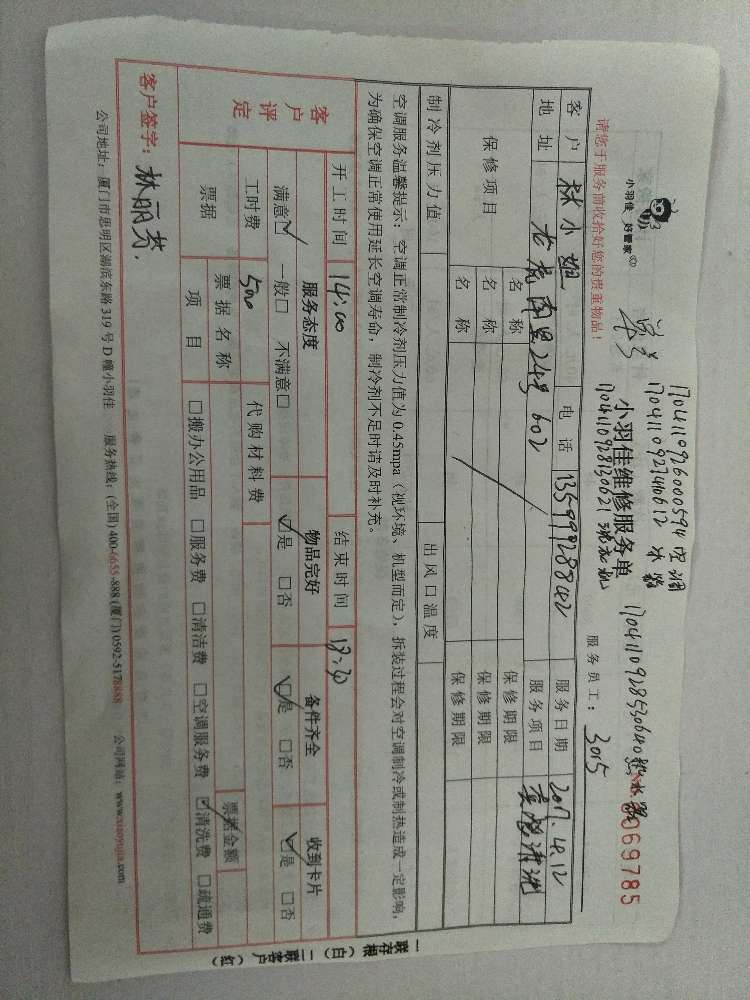 小羽佳 好管家
请您于服务前收拾好您的贵重物品！
单号
1704110926000594 空调
17041109274110612 冰箱
小羽佳维修服务单
1704110928130621 洗衣机
1704110928530640 热水器
069785
服务员工：3015
客户 林小姐 电话 13599928842 服务日期 2017.4.12
地址 老虎南里24号602 服务项目 家电清洗
保修项目 名称 保修期限
名称 保修期限
名称 保修期限
制冷剂压力值 出风口温度
空调服务温馨提示：空调正常制冷剂压力值为0.45mpa（视环境、机型而定），拆装过程会对空调制冷或制热造成一定影响，
为确保空调正常使用延长空调寿命，制冷剂不足时请及时补充。
客户评定
开工时间 14:00 结束时间 18:30
服务态度 物品完好 备件齐全 收到卡片
满意☑ 一般□ 不满意□ ☑是 □否 ☑是 □否 ☑是 □否
工时费 500 代购材料费
票据 票据名称 票据金额
项目 □搬办公用品 □服务费 □清洁费 □空调服务费 ☑清洗费 □疏通费
客户签字：林丽芳.
公司地址：厦门市思明区湖滨东路319号D幢小羽佳 服务热线：(全国) 400-6655-888 (厦门) 0592-5178888 公司网站：www.xiaoyujia.com
一联存根（白） 二联客户（红）